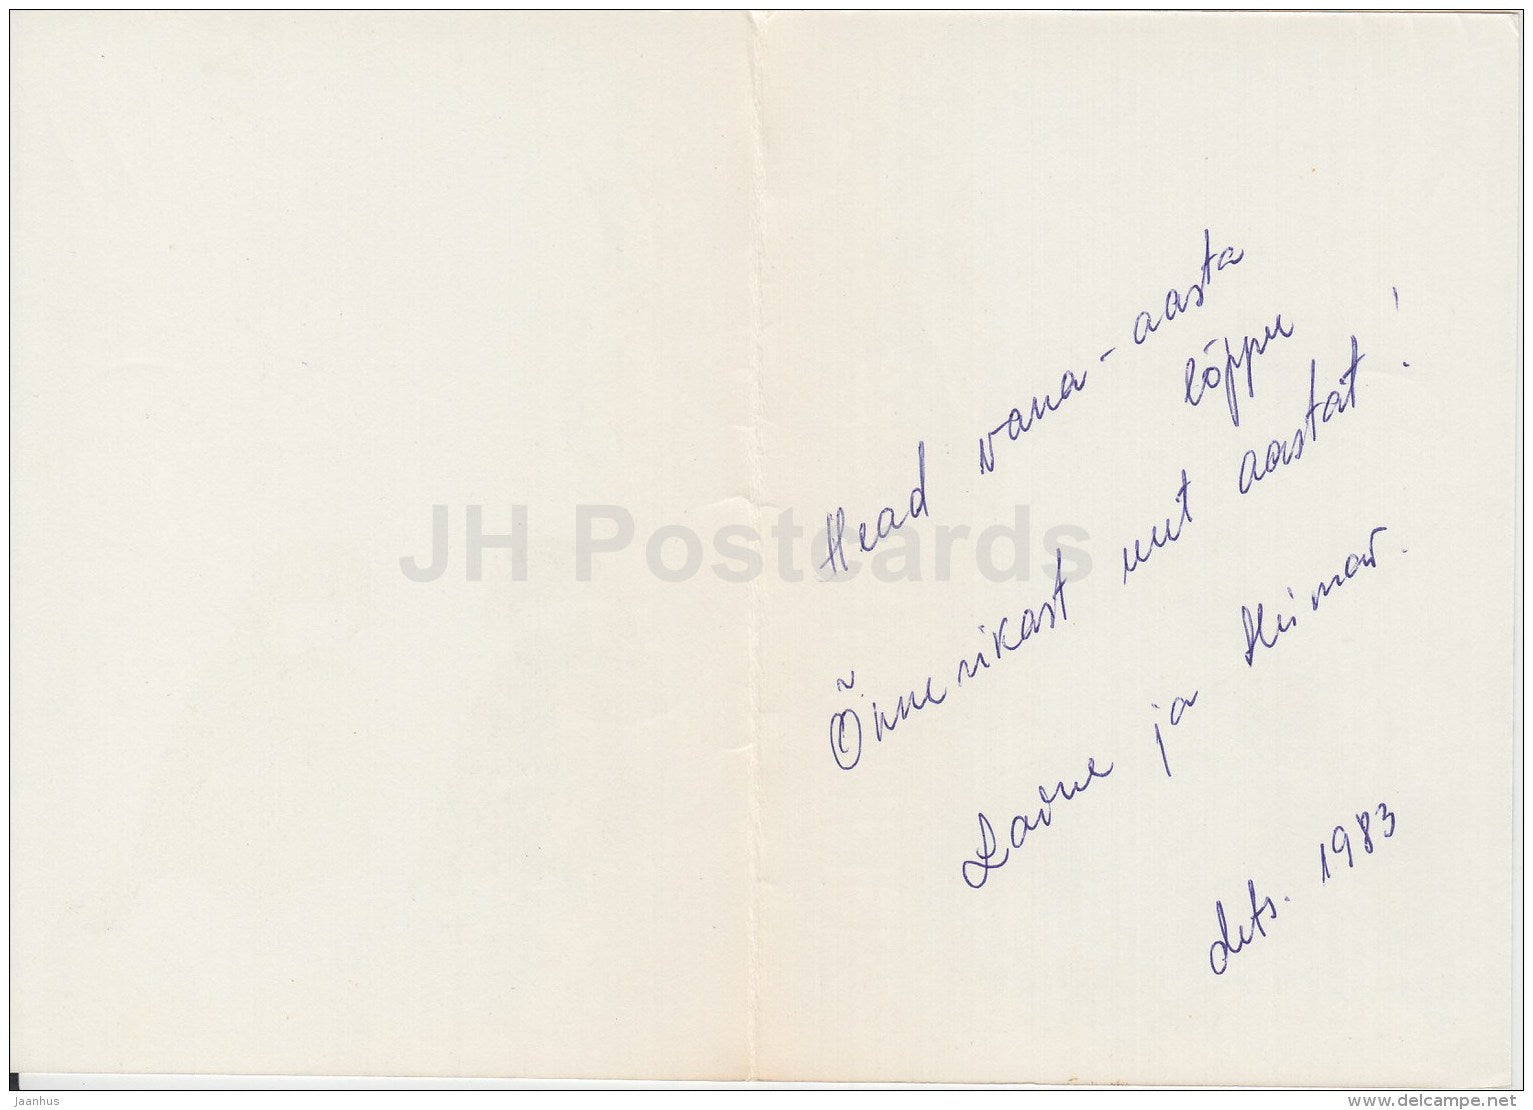 Head vana-aasta
lõppu
Õnnerikast uut aastat!
Laine ja Hiimar.
dets. 1983
JH Postcards
Jaanhus
www.delcampe.net